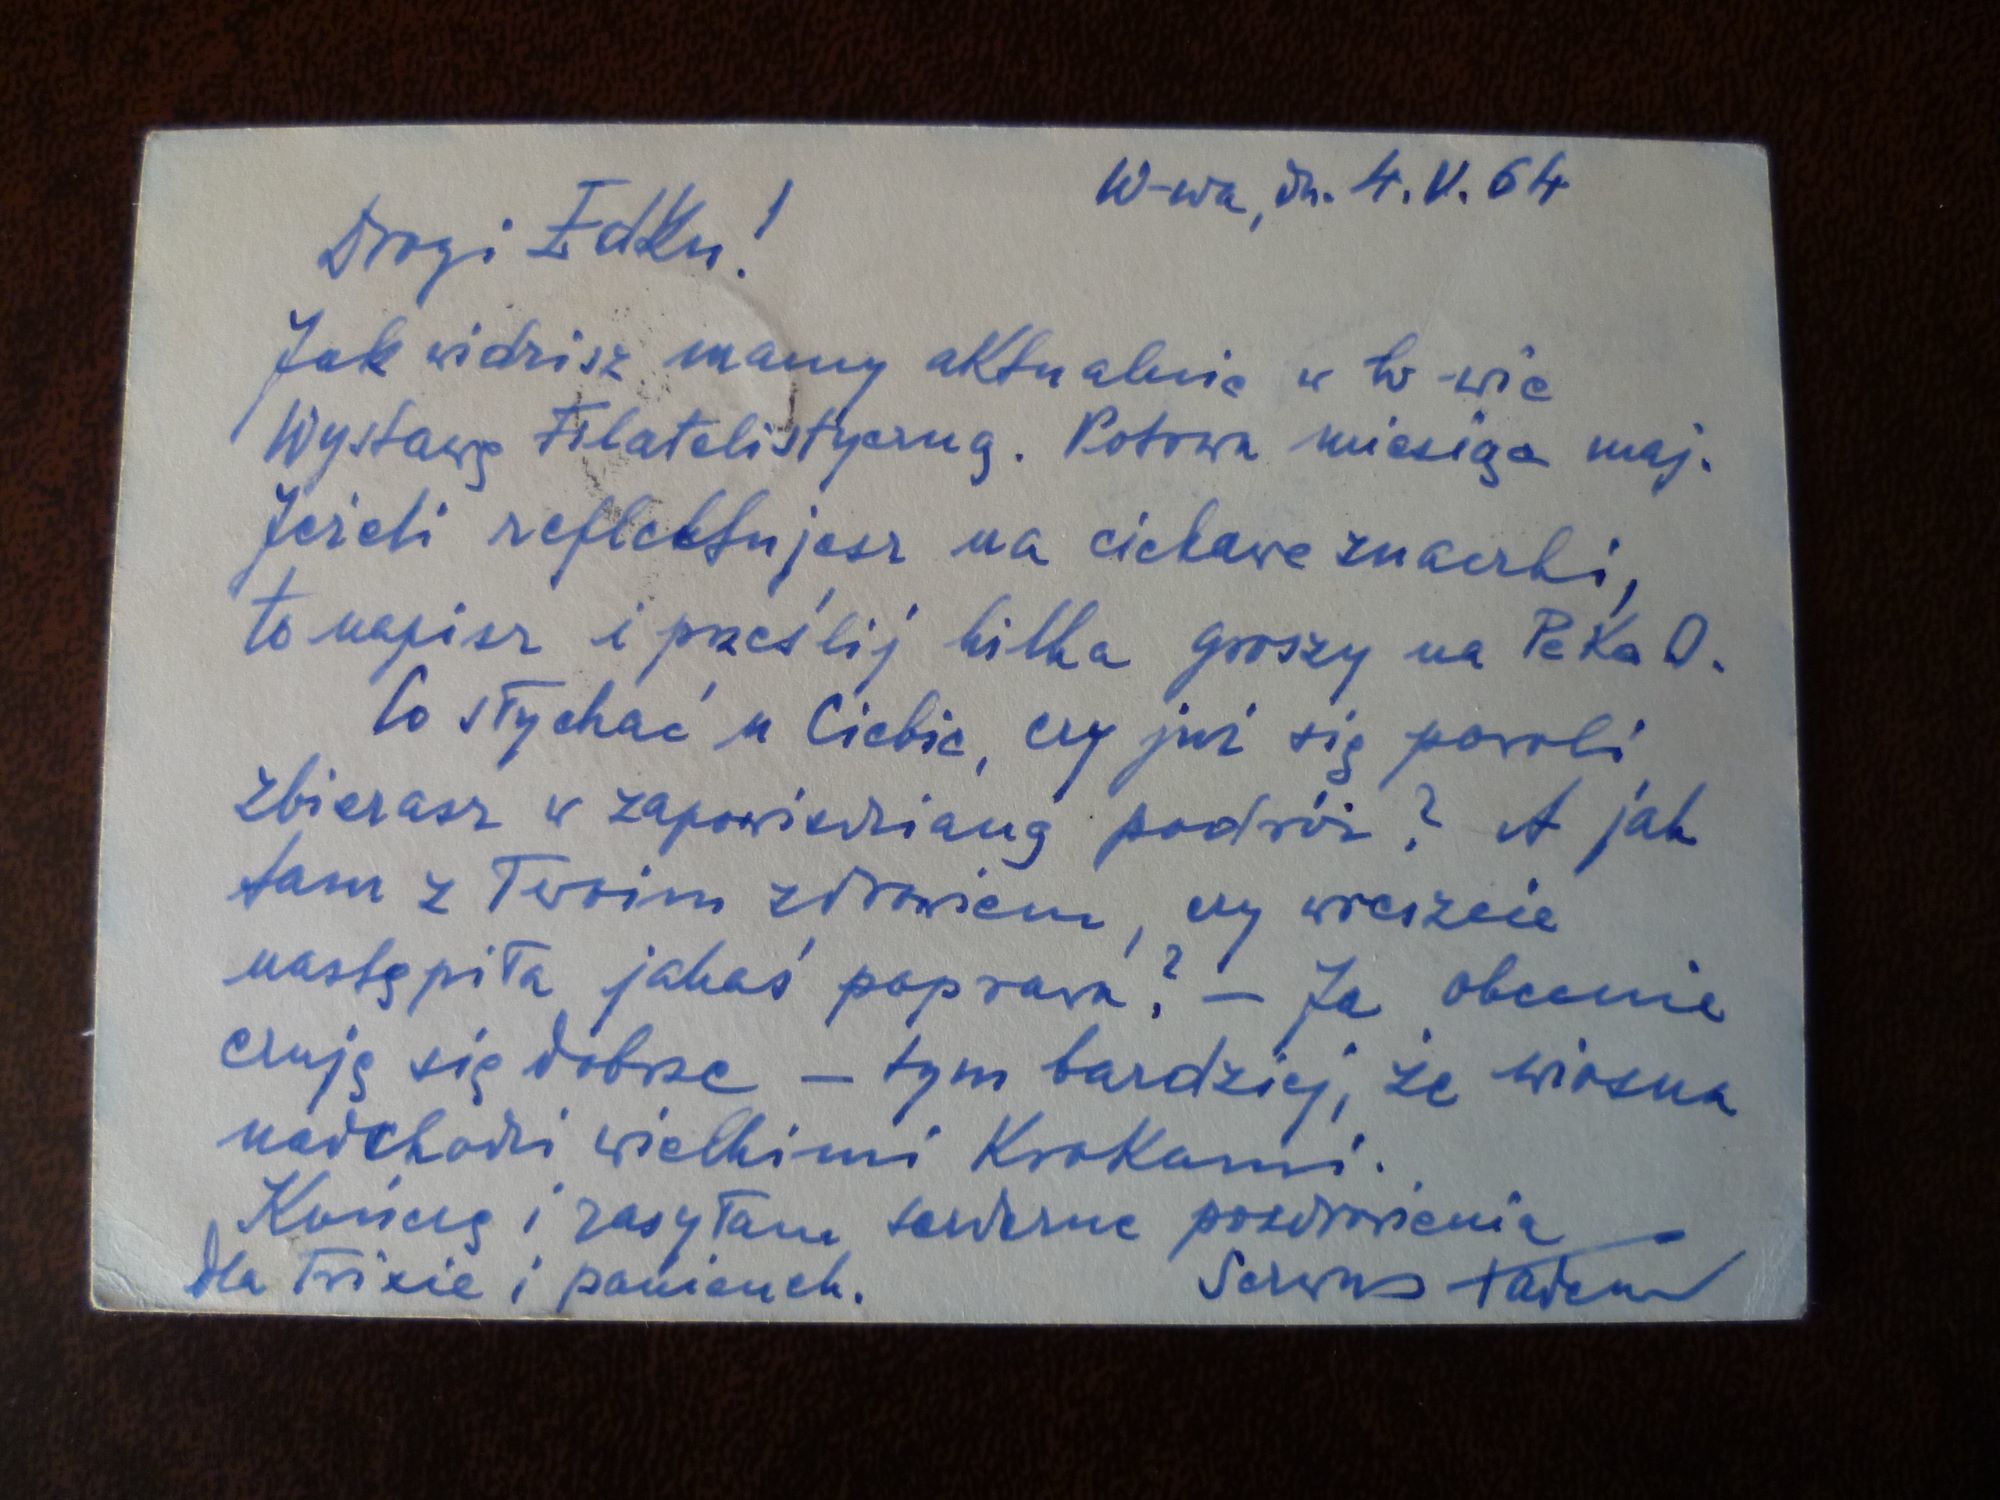 W-wa, dn. 4.V.64
Drogi Edku!
Jak widzisz mamy aktualnie w W-wie
Wystawę Filatelistyczną. Potowa miesiąca maj.
Jeżeli reflektujesz na ciekawe znaczki,
to napisz i prześlij kilka groszy na PeKaO.
Co słychać u Ciebie, czy już się powoli
zbierasz w zapowiedzianą podróż? A jak
tam z Twoim zdrowiem, czy wreszcie
nastąpiła jakaś poprawa? - Ja obecnie
czuję się dobrze - tym bardziej, że wiosna
nadchodzi wielkimi krokami.
Kończę i zasyłam serdeczne pozdrowienia
dla Trixie i panienek. Serwus Tadeusz